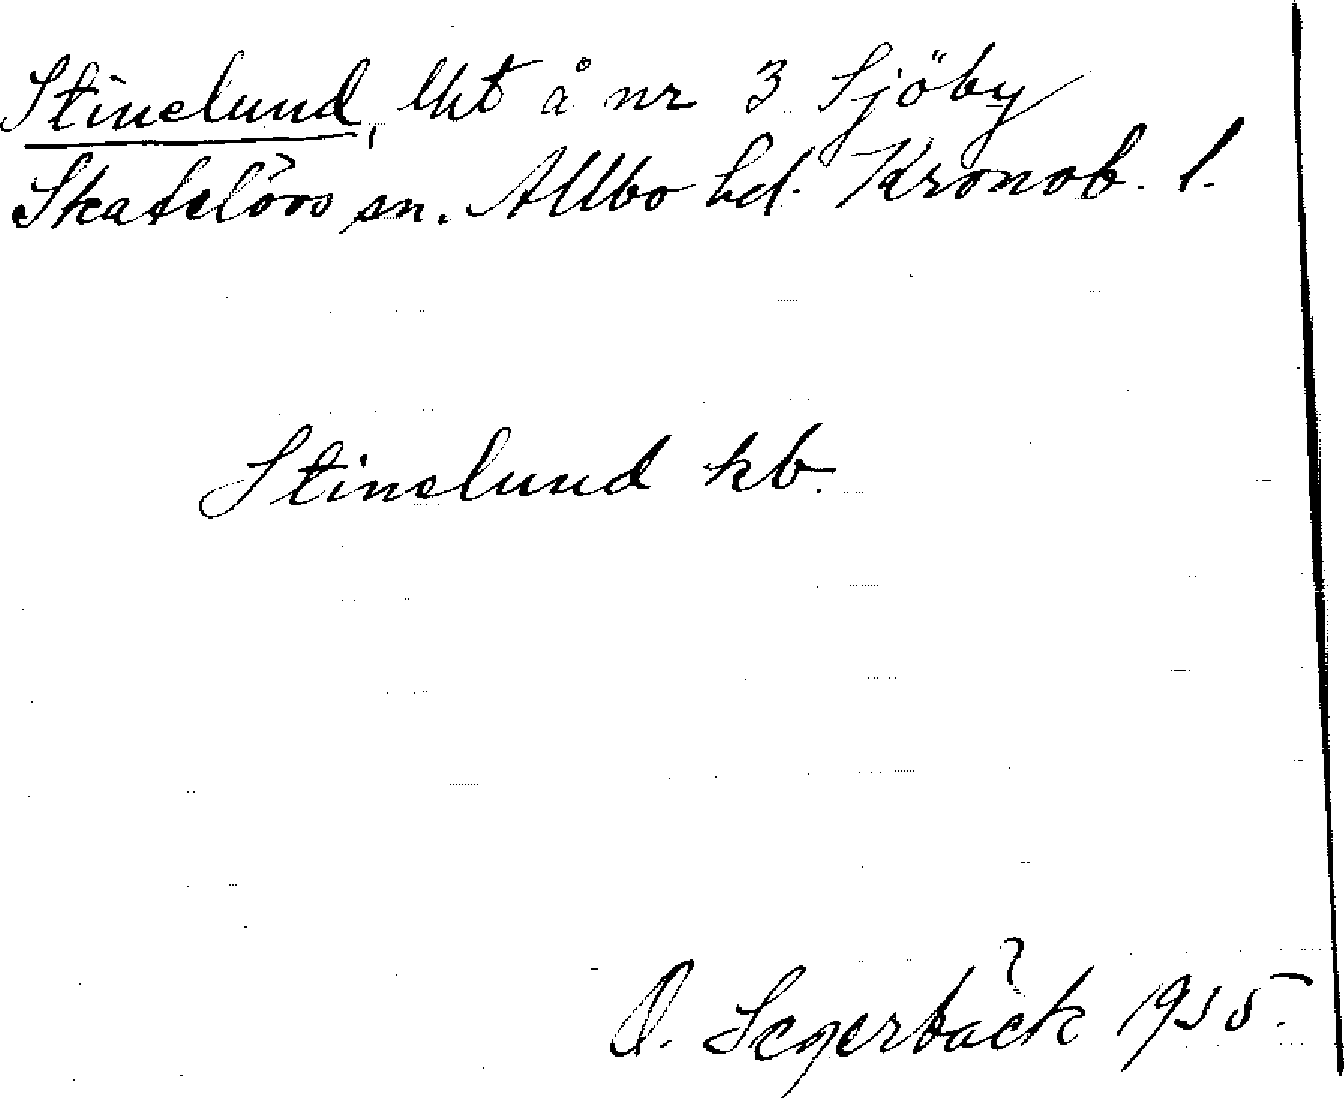 Stinelund, lht å nr 3 Sjöby
Skatelövs sn. Allbo hd. Kronob. l.
Stinelund kb.
O. Segerbäck 1935.